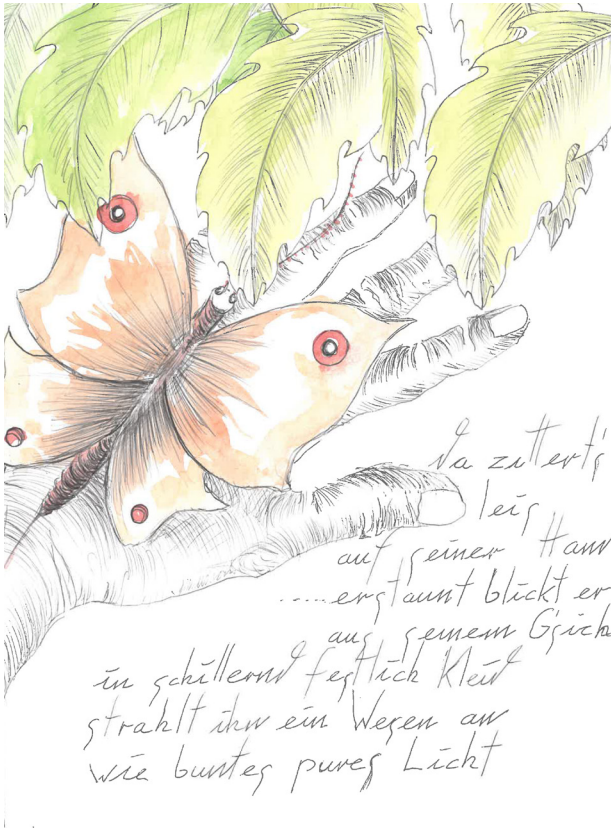 da zittert's
leis
auf seiner Hann
.....erstaunt blickt er
aus seinem Gsich
in schillernd festlich Kleid
strahlt ihn ein Wesen an
wie buntes pures Licht